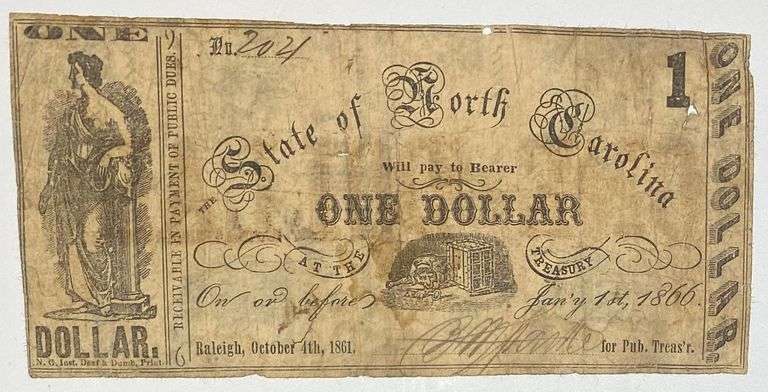 ONE
DOLLAR.
N. C. Inst. Deaf & Dumb, Print.
RECEIVABLE IN PAYMENT OF PUBLIC DUES.
No. 204
1
THE State of North Carolina
Will pay to Bearer
ONE DOLLAR
AT THE TREASURY
On or before Jan'y 1st, 1866.
Raleigh, October 4th, 1861.
for Pub. Treas'r.
ONE DOLLAR.